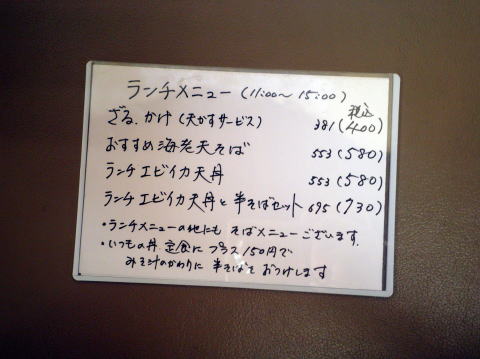 ランチメニュー (11:00〜15:00)
税込
ざる、かけ (天かすサービス) 381 (400)
おすすめ海老天そば 553 (580)
ランチエビイカ天丼 553 (580)
ランチエビイカ天丼と半そばセット 695 (730)
・ランチメニューの他にも そばメニューございます。
・いつもの丼 定食に プラス150円で
みそ汁のかわりに 半そばを おつけします